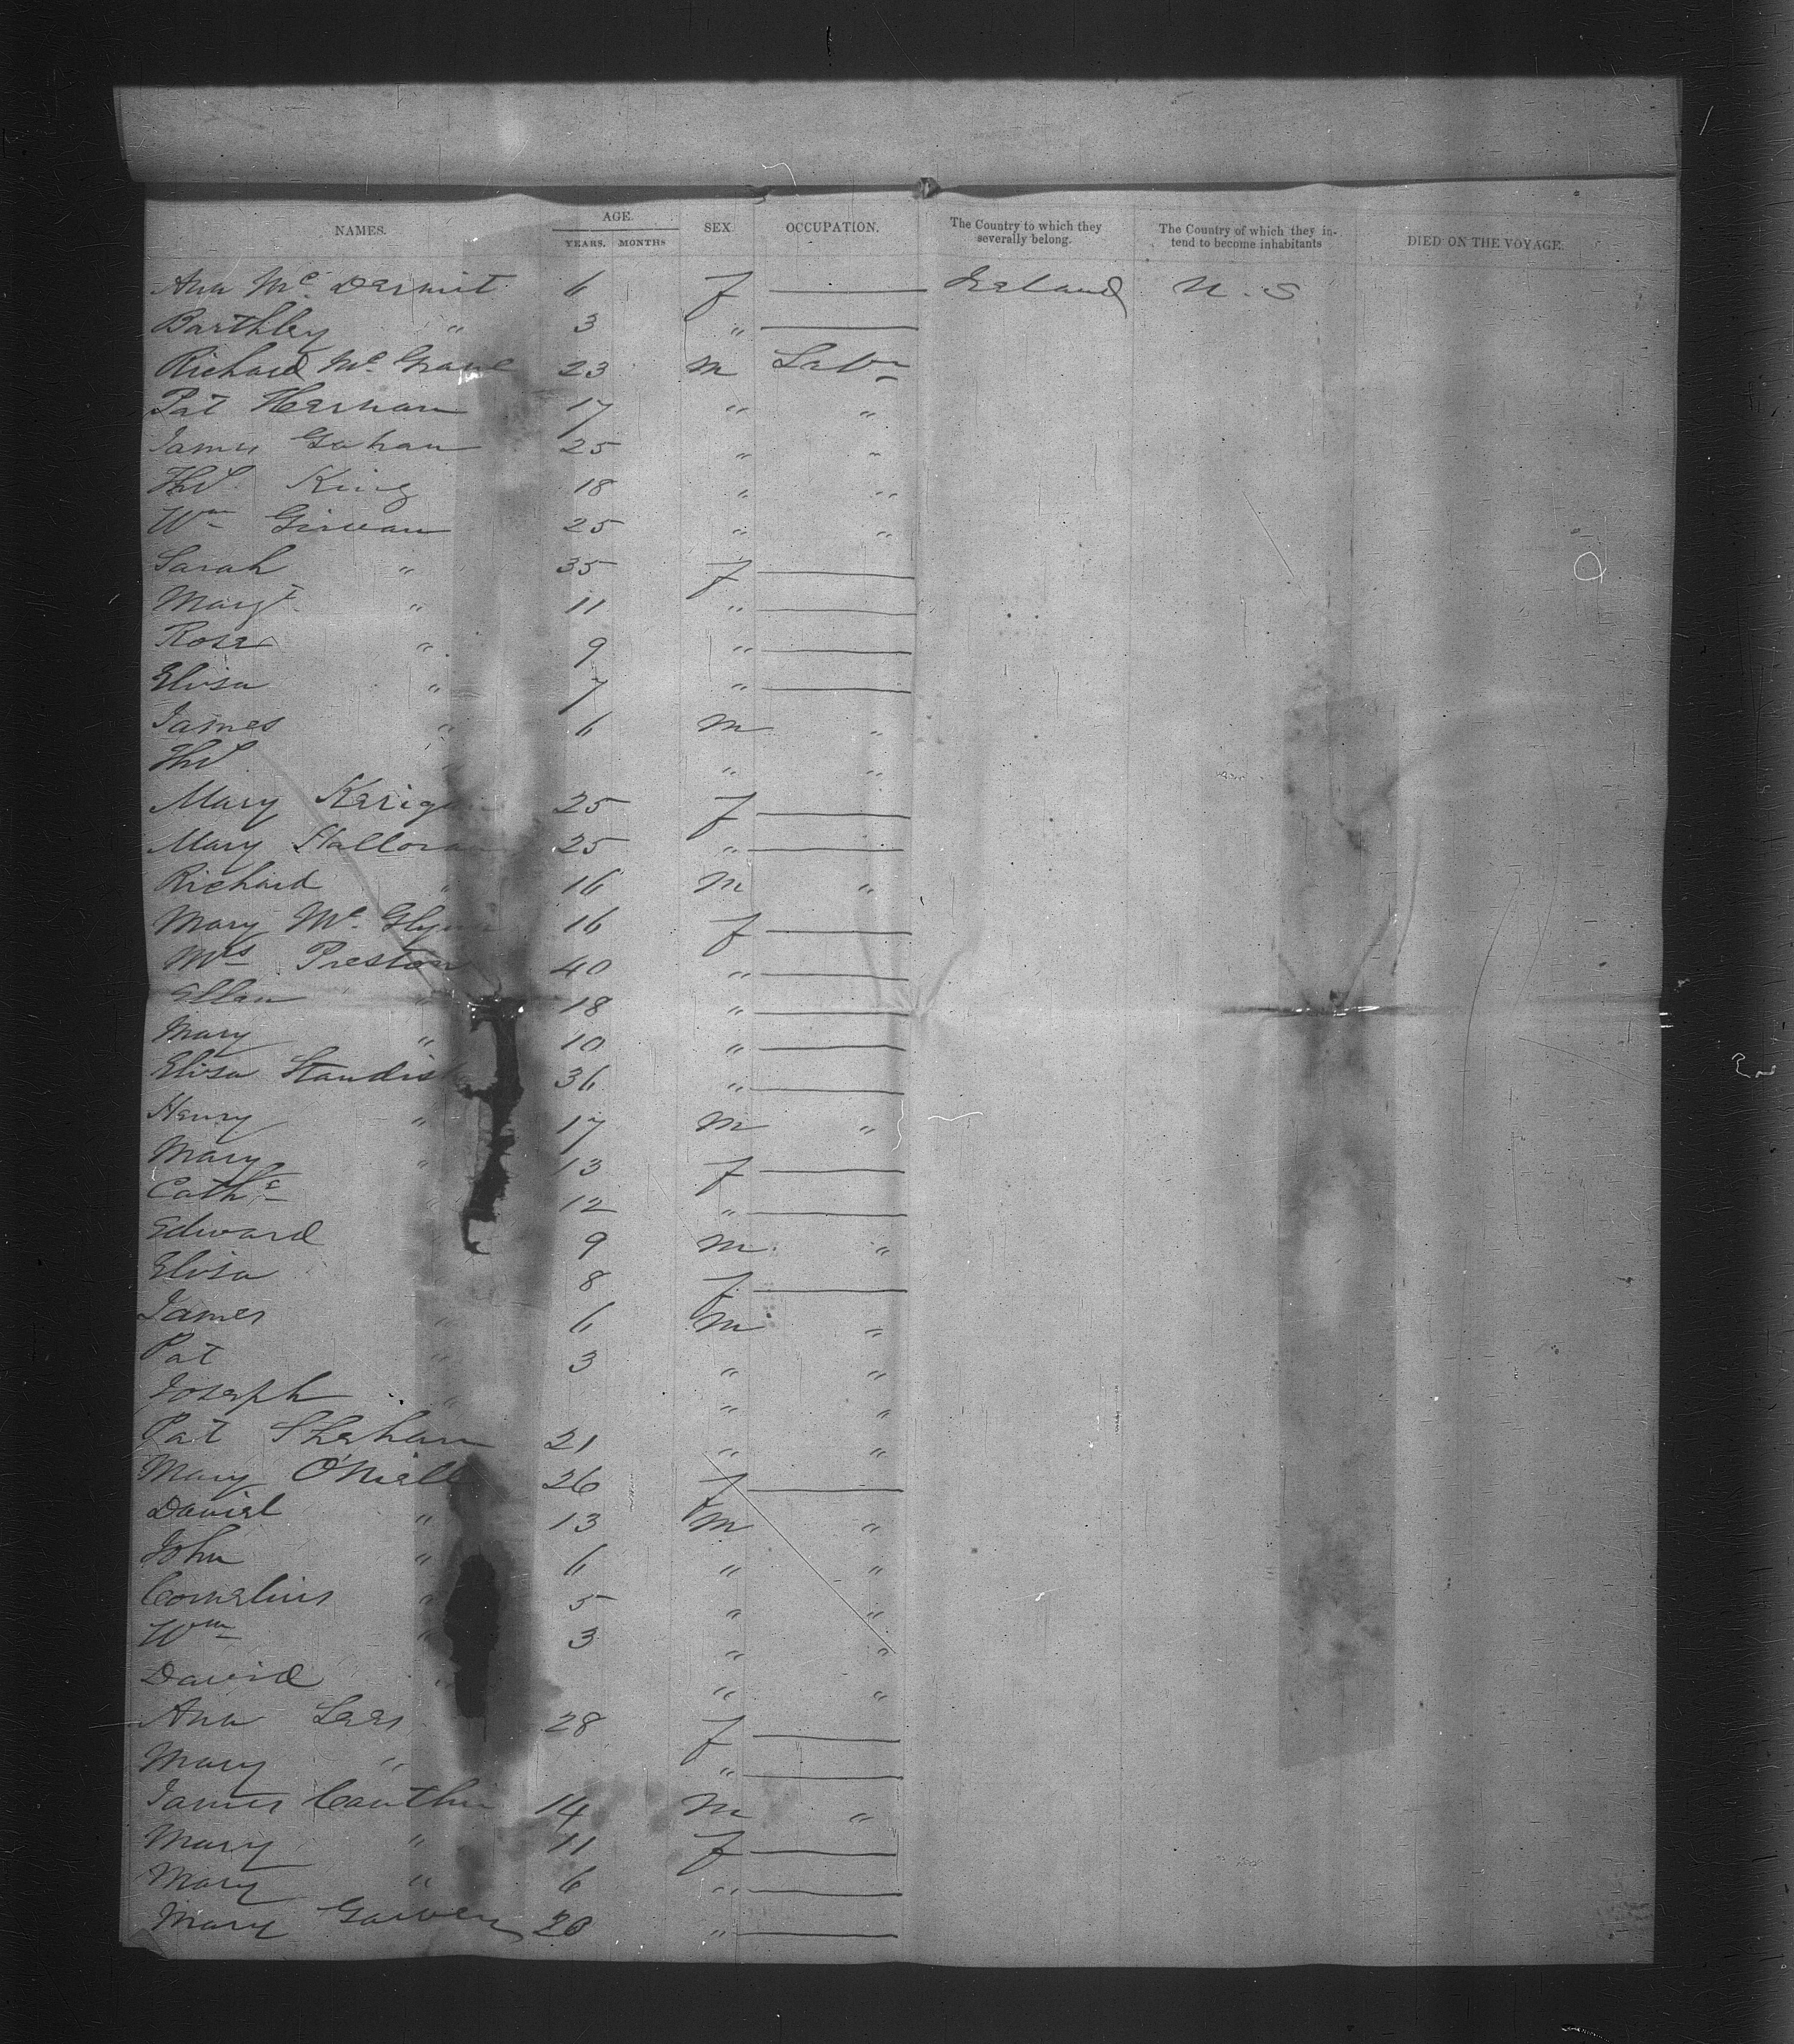 NAMES. AGE. SEX OCCUPATION. The Country to which they severally belong. The Country of which they intend to become inhabitants DIED ON THE VOYAGE.
YEARS. MONTHS
Ann Mc Dermit 6 f — Ireland U. S
Barthley " 3 " —
Richard Mc 23 m Labr
Pat Hernan 17 " "
James Gahan 25 " "
Thos King 18 " "
Wm Girwan 25 " "
Sarah " 35 f —
Margt " 11 " —
Rose " 9 " —
Eliza " 7 " —
James " 6 m "
Thos " " "
Mary Kerigan 25 f —
Mary Halloran 25 " —
Richard " 16 m "
Mary Mc Glynn 16 f —
Mrs Preston 40 " —
Ellen " 18 " —
Mary " 10 " —
Eliza Standish 36 " —
Henry " 17 m "
Mary " 13 f —
Cathe " 12 " —
Edward " 9 m "
Eliza 8 f —
James " 6 m "
Pat " 3 " "
Joseph " " "
Pat Shehan 21 " "
Mary O'Niell 26 f —
Daniel " 13 m "
John " 6 " "
Cornelius " 5 " "
Wm " 3 " "
David " " "
Ann Lees 28 f —
Mary " " —
James 14 m "
Mary " 11 f —
Mary " 6 " —
Mary 20 " —